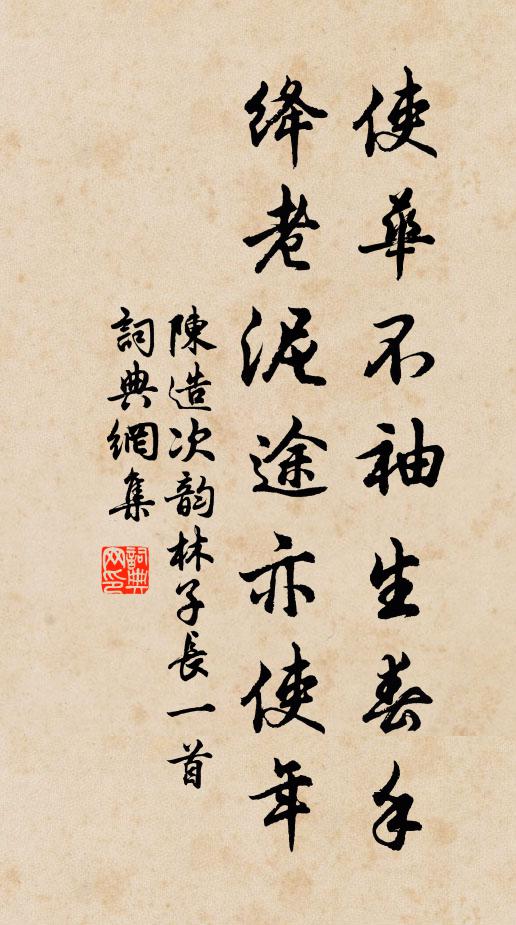 使華不袖生春手
絳老泥途亦使年
陳造次韵林子長一首
詞典網集
詞典
网印